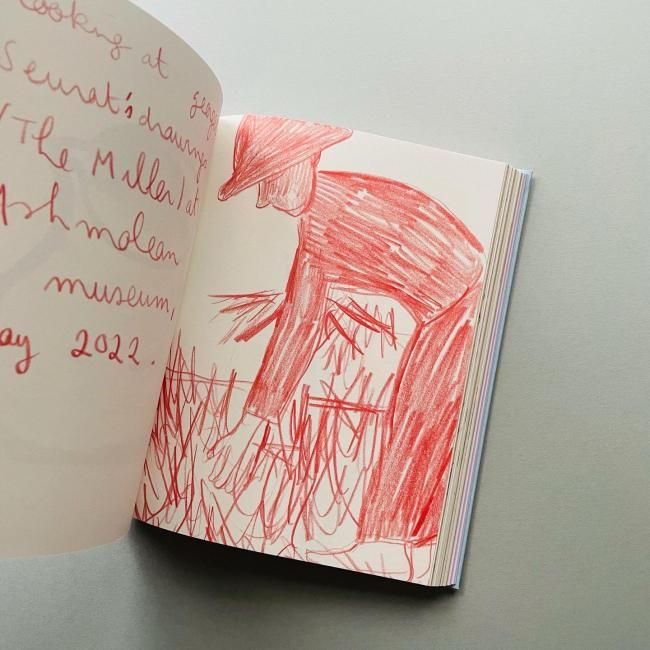 Cooking at
Seurat's drawings
(The Miller) at
Ashmolean
museum,
2022.